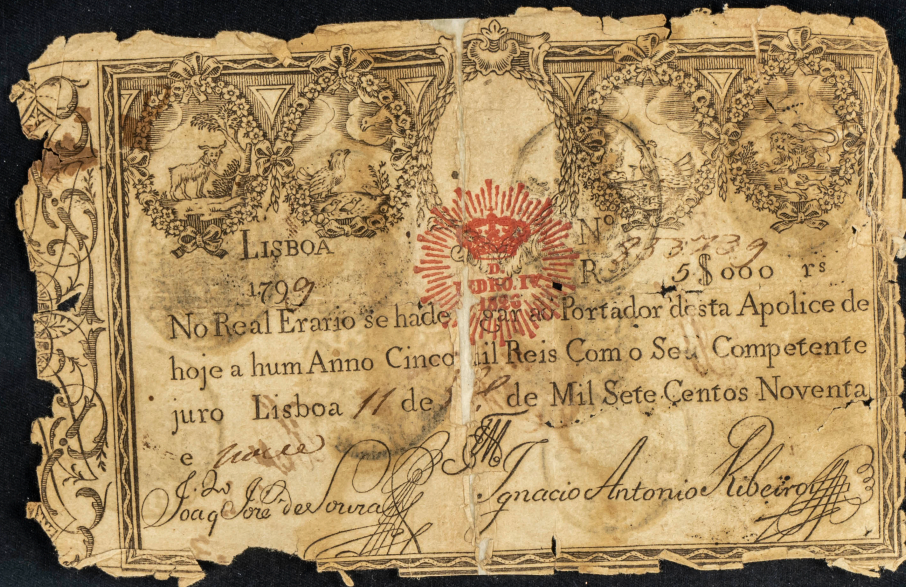 LISBOA
1799
Nº 353739
R 5$000 rs
D.
PEDRO. IV
1826
No Real Erario se hade gar ao Portador desta Apolice de
hoje a hum Anno Cinco mil Reis Com o Seu Competente
juro Lisboa 11 de de Mil Sete Centos Noventa
e nove
Joaq Jose de Souza
Ignacio Antonio Ribeiro